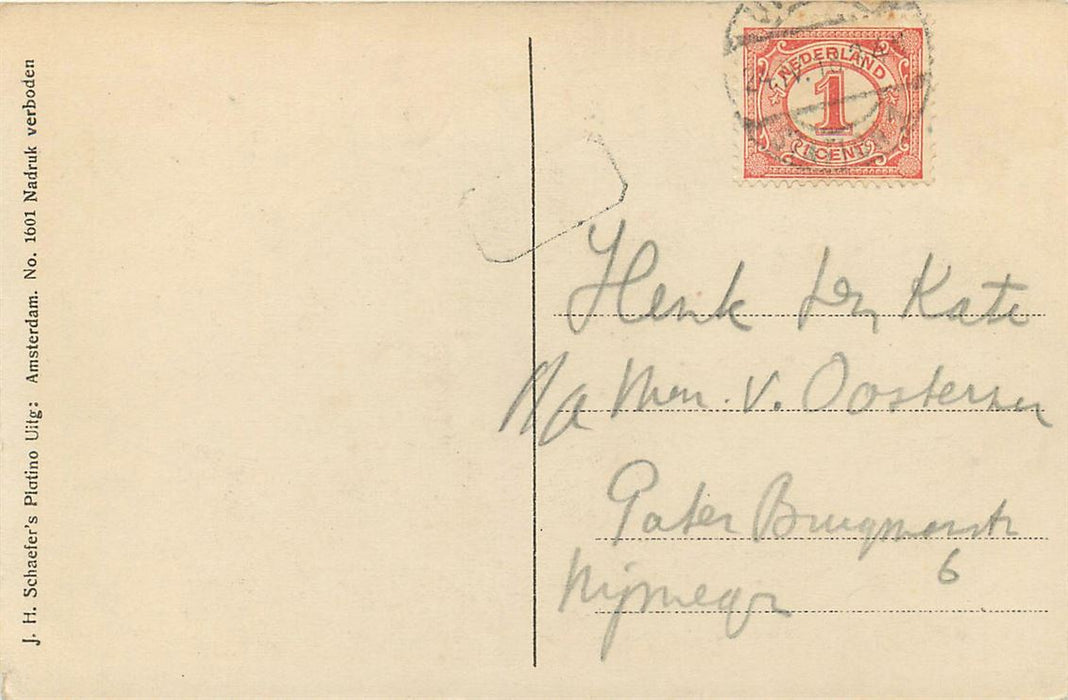 J. H. Schaefer's Platino Uitg: Amsterdam. No. 1601 Nadruk verboden
NEDERLAND
1
CENT
Henk ten Kate
p/a Men. v. Oosterzee
Pater Brugmanstr
6
Nijmegen